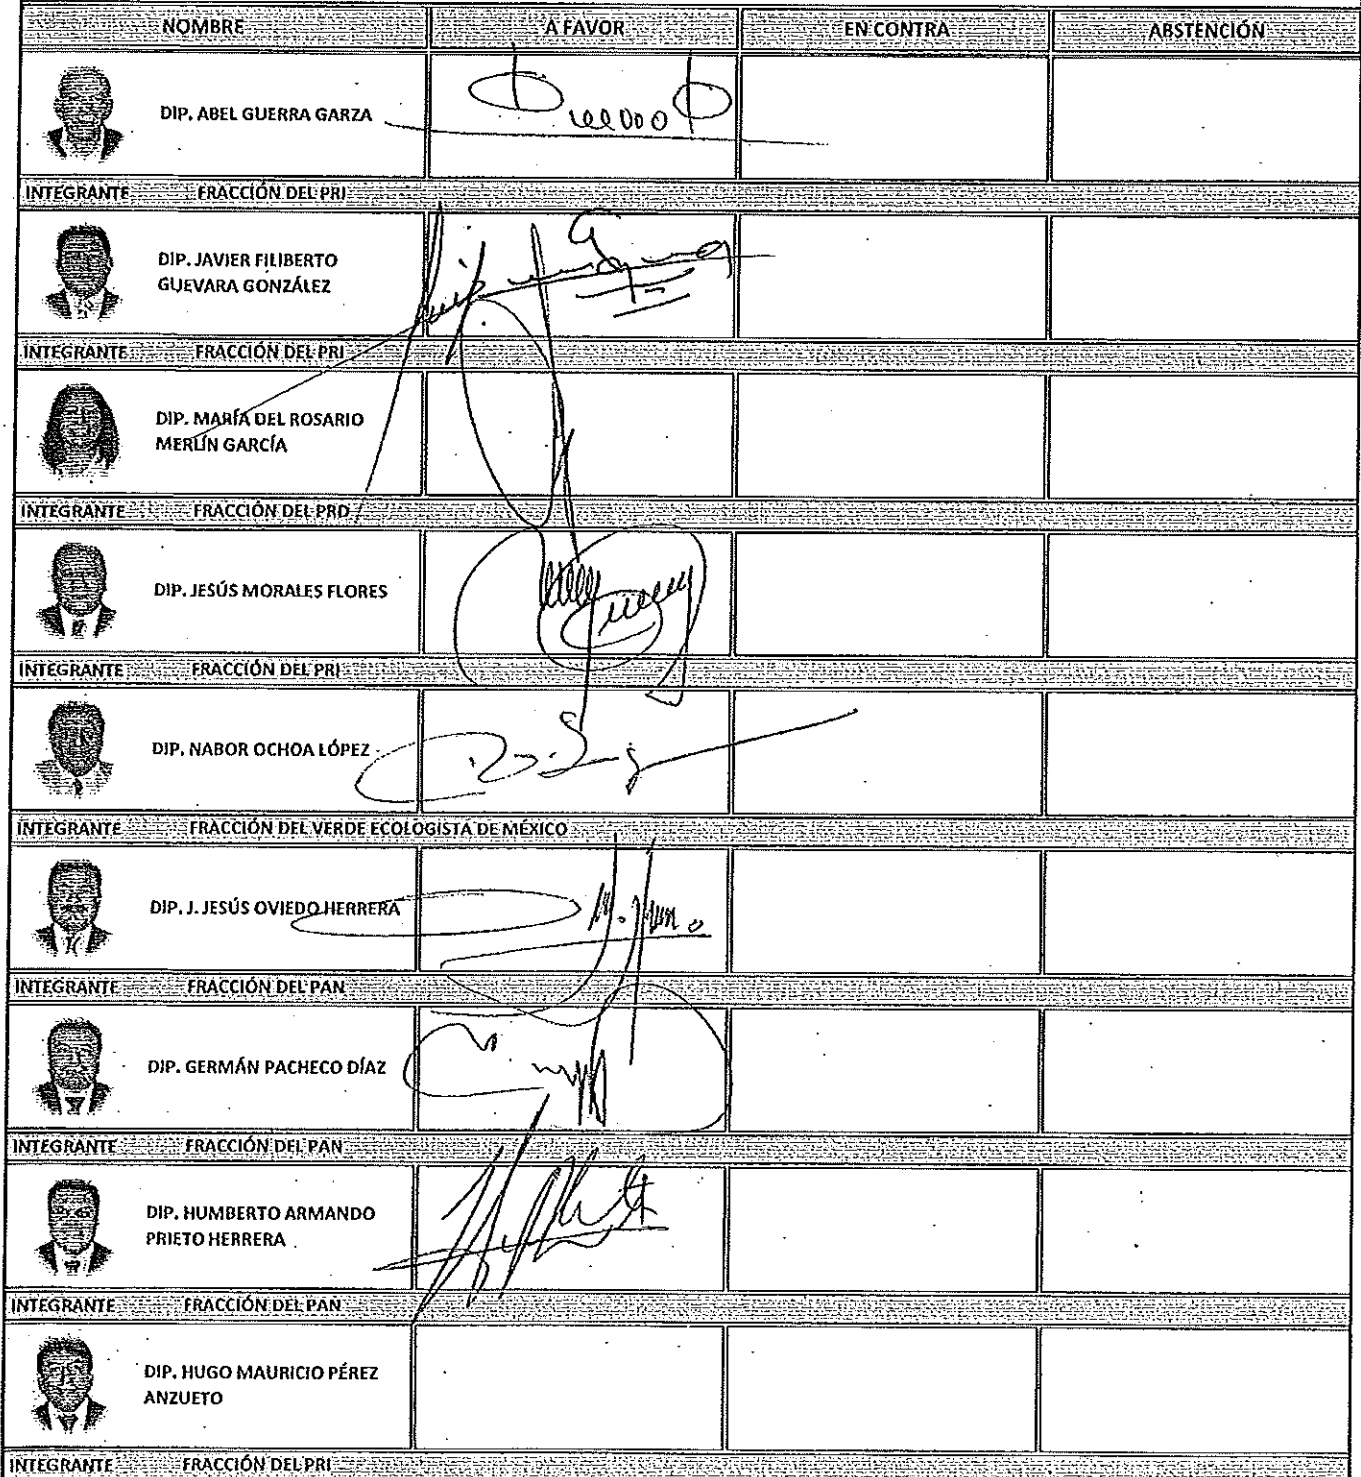 NOMBRE A FAVOR EN CONTRA ABSTENCIÓN
DIP. ABEL GUERRA GARZA
INTEGRANTE FRACCIÓN DEL PRI
DIP. JAVIER FILIBERTO
GUEVARA GONZÁLEZ
INTEGRANTE FRACCIÓN DEL PRI
DIP. MARÍA DEL ROSARIO
MERLÍN GARCÍA
INTEGRANTE FRACCIÓN DEL PRD
DIP. JESÚS MORALES FLORES
INTEGRANTE FRACCIÓN DEL PRI
DIP. NABOR OCHOA LÓPEZ
INTEGRANTE FRACCIÓN DEL VERDE ECOLOGISTA DE MÉXICO
DIP. J. JESÚS OVIEDO HERRERA
INTEGRANTE FRACCIÓN DEL PAN
DIP. GERMÁN PACHECO DÍAZ
INTEGRANTE FRACCIÓN DEL PAN
DIP. HUMBERTO ARMANDO
PRIETO HERRERA
INTEGRANTE FRACCIÓN DEL PAN
DIP. HUGO MAURICIO PÉREZ
ANZUETO
INTEGRANTE FRACCIÓN DEL PRI